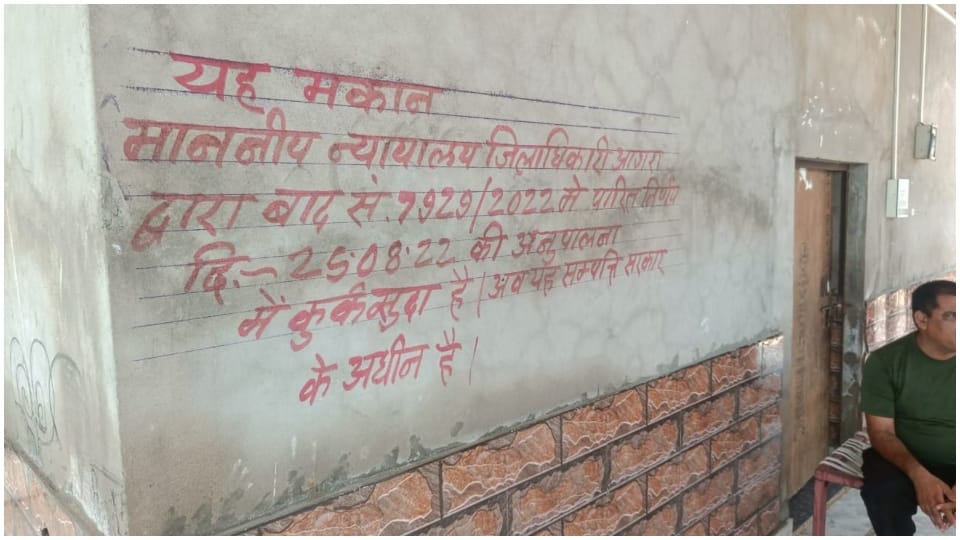 यह मकान
माननीय न्यायालय जिलाधिकारी आगरा
द्वारा बाद सं. 7929/2022 मे पारित निर्णय
दि:- 25:08:22 की अनुपालना
में कुर्कसुदा है। अव यह सम्पत्ति सरकार
के अधीन है।